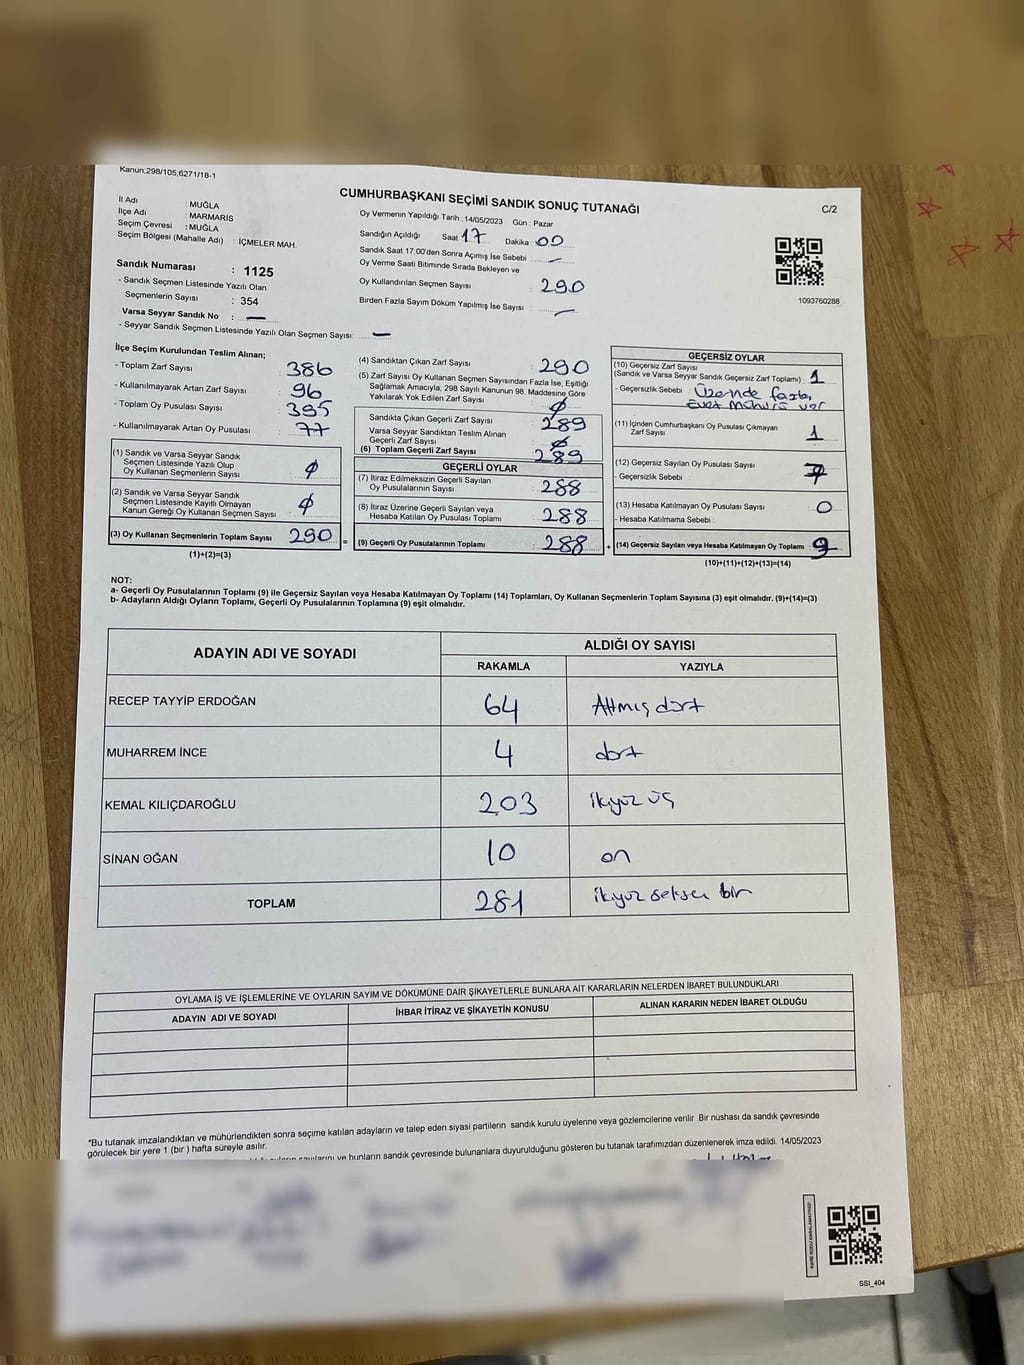 Kanun;298/105,6271/18-1
CUMHURBAŞKANI SEÇİMİ SANDIK SONUÇ TUTANAĞI
C/2
İl Adı : MUĞLA
İlçe Adı : MARMARİS
Seçim Çevresi : MUĞLA
Seçim Bölgesi (Mahalle Adı) : İÇMELER MAH.
Sandık Numarası : 1125
- Sandık Seçmen Listesinde Yazılı Olan
Seçmenlerin Sayısı : 354
Varsa Seyyar Sandık No : —
- Seyyar Sandık Seçmen Listesinde Yazılı Olan Seçmen Sayısı: —
Oy Vermenin Yapıldığı Tarih :14/05/2023 Gün : Pazar
Sandığın Açıldığı Saat 17 Dakika : 00
Sandık Saat 17:00'den Sonra Açımış İse Sebebi : —
Oy Verme Saati Bitiminde Sırada Bekleyen ve
Oy Kullandırılan Seçmen Sayısı : 290
Birden Fazla Sayım Döküm Yapılmış İse Sayısı : —
1093760288
İlçe Seçim Kurulundan Teslim Alınan;
- Toplam Zarf Sayısı : 386
- Kullanılmayarak Artan Zarf Sayısı : 96
- Toplam Oy Pusulası Sayısı : 395
- Kullanılmayarak Artan Oy Pusulası : 77
(1) Sandık ve Varsa Seyyar Sandık
Seçmen Listesinde Yazılı Olup
Oy Kullanan Seçmenlerin Sayısı : ∅
(2) Sandık ve Varsa Seyyar Sandık
Seçmen Listesinde Kayıtlı Olmayan
Kanun Gereği Oy Kullanan Seçmen Sayısı : ∅
(3) Oy Kullanan Seçmenlerin Toplam Sayısı : 290
(1)+(2)=(3)
=
(4) Sandıktan Çıkan Zarf Sayısı : 290
(5) Zarf Sayısı Oy Kullanan Seçmen Sayısından Fazla İse, Eşitliği
Sağlamak Amacıyla, 298 Sayılı Kanunun 98. Maddesine Göre
Yakılarak Yok Edilen Zarf Sayısı : ∅
Sandıkta Çıkan Geçerli Zarf Sayısı : 289
Varsa Seyyar Sandıktan Teslim Alınan
Geçerli Zarf Sayısı : ∅
(6) Toplam Geçerli Zarf Sayısı : 289
GEÇERLİ OYLAR
(7) İtiraz Edilmeksizin Geçerli Sayılan
Oy Pusulalarının Sayısı : 288
(8) İtiraz Üzerine Geçerli Sayılan veya
Hesaba Katılan Oy Pusulası Toplamı : 288
(9) Geçerli Oy Pusulalarının Toplamı : 288
+
GEÇERSİZ OYLAR
(10) Geçersiz Zarf Sayısı
(Sandık ve Varsa Seyyar Sandık Geçersiz Zarf Toplamı) : 1
- Geçersizlik Sebebi : Üzerinde fazla,
Evet mühürü var
(11) İçinden Cumhurbaşkanı Oy Pusulası Çıkmayan
Zarf Sayısı : 1
(12) Geçersiz Sayılan Oy Pusulası Sayısı : 7
- Geçersizlik Sebebi :
(13) Hesaba Katılmayan Oy Pusulası Sayısı : 0
- Hesaba Katılmama Sebebi :
(14) Geçersiz Sayılan veya Hesaba Katılmayan Oy Toplamı : 9
(10)+(11)+(12)+(13)=(14)
NOT:
a- Geçerli Oy Pusulasının Toplamı (9) ile Geçersiz Sayılan veya Hesaba Katılmayan Oy Toplamı (14) Toplamları, Oy Kullanan Seçmenlerin Toplam Sayısına (3) eşit olmalıdır. (9)+(14)=(3)
b- Adayların Aldığı Oyların Toplamı, Geçerli Oy Pusulalarının Toplamına (9) eşit olmalıdır.
ADAYIN ADI VE SOYADI
ALDIĞI OY SAYISI
RAKAMLA YAZIYLA
RECEP TAYYİP ERDOĞAN 64 Altmış dört
MUHARREM İNCE 4 dört
KEMAL KILIÇDAROĞLU 203 ikiyüz üç
SİNAN OĞAN 10 on
TOPLAM 281 ikiyüz seksen bir
OYLAMA İŞ VE İŞLEMLERİNE VE OYLARIN SAYIM VE DÖKÜMÜNE DAİR ŞİKAYETLERLE BUNLARA AİT KARARLARIN NELERDEN İBARET BULUNDUKLARI
ADAYIN ADI VE SOYADI İHBAR İTİRAZ VE ŞİKAYETİN KONUSU ALINAN KARARIN NEDEN İBARET OLDUĞU
*Bu tutanak imzalandıktan ve mühürlendikten sonra seçime katılan adayların ve talep eden siyasi partilerin sandık kurulu üyelerine veya gözlemcilerine verilir. Bir nüshası da sandık çevresinde
görülecek bir yere 1 (bir ) hafta süreyle asılır.
sayılarını ve bunların sandık çevresinde bulunanlara duyurulduğunu gösteren bu tutanak tarafımızdan düzenlenerek imza edildi. 14/05/2023
KARE KODU KARALAMAYINIZ!
SSI_404